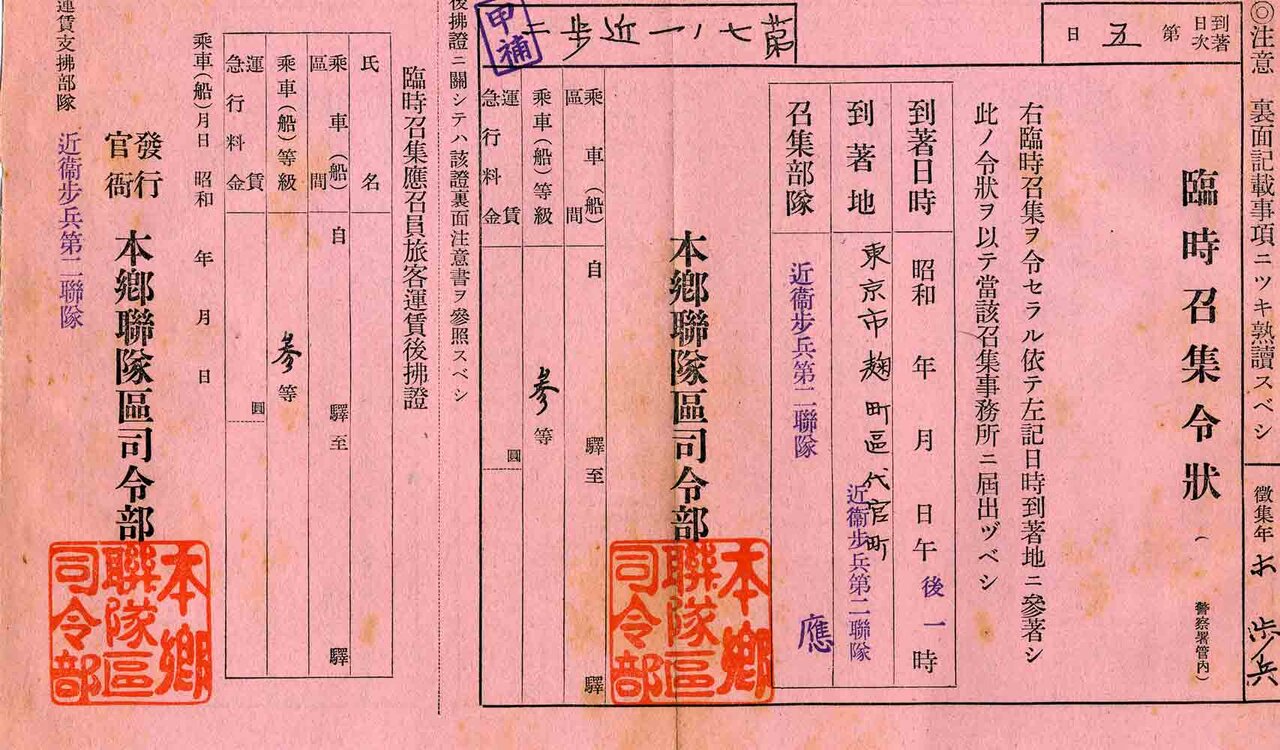 ◎注意 裏面記載事項ニツキ熟讀スベシ
徵集年
步兵
到著日次
第 五 日
第七ノ一近步二
甲補
臨時召集令狀
(警察署管内)
右臨時召集ヲ令セラル依テ左記日時到著地ニ參著シ
此ノ令狀ヲ以テ當該召集事務所ニ屆出ヅベシ
到著日時 昭和 年 月 日午後一時
到著地 東京市麹町區代官町
近衞步兵第二聯隊
召集部隊 近衞步兵第二聯隊
應
本鄕聯隊區司令部
本鄕聯隊區司令部
乘車(船)區間 自 驛至 驛
乘車(船)等級 參等
運賃 圓
急行料金
後拂證ニ關シテハ該證裏面注意書ヲ參照スベシ
臨時召集應召員旅客運賃後拂證
氏名
乘車(船)區間 自 驛至 驛
乘車(船)等級 參等
運賃 圓
急行料金
乘車(船)月日 昭和 年 月 日
發行官衙 本鄕聯隊區司令部
本鄕聯隊區司令部
運賃支拂部隊 近衞步兵第二聯隊